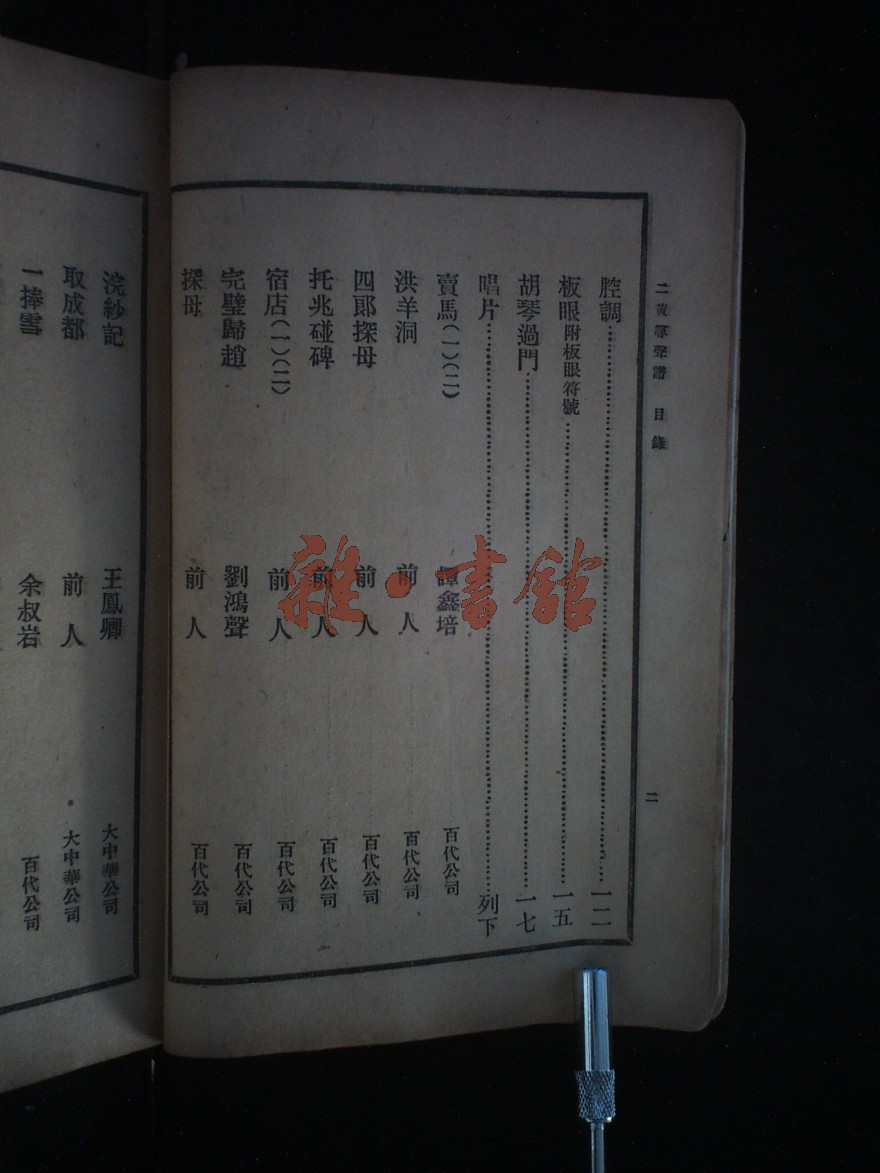 二黃尋聲譜 目錄
二
腔調……一二
板眼附板眼符號……一五
胡琴過門……一七
唱片……列下
賣馬(一)(二) 譚鑫培 百代公司
洪羊洞 前人 百代公司
四郎探母 前人 百代公司
托兆碰碑 前人 百代公司
宿店(一)(二) 前人 百代公司
完璧歸趙 劉鴻聲 百代公司
探母 前人 百代公司
浣紗記 王鳳卿 大中華公司
取成都 前人 大中華公司
一捧雪 余叔岩 百代公司
雜·書館